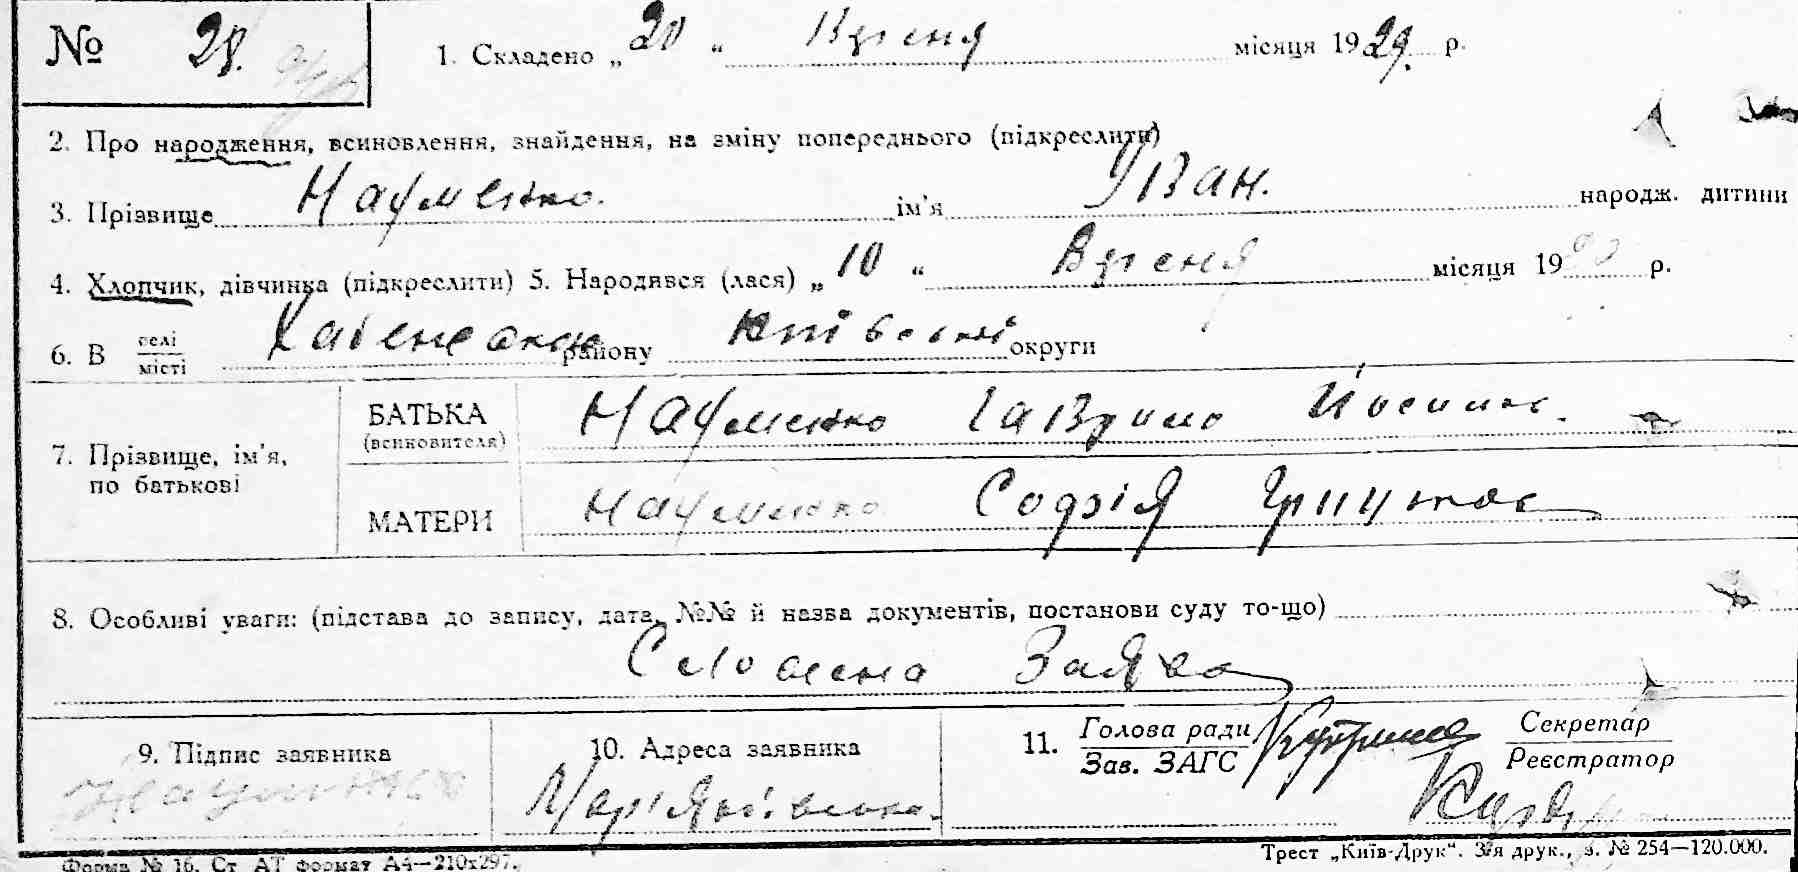 № 28. 1. Складено „20“ Вресня місяця 1929. р.
2. Про народження, всиновлення, знайдення, на зміну попереднього (підкреслити)
3. Прізвище Науменко. ім'я Уван. народж. дитини
4. Хлопчик, дівчинка (підкреслити) 5. Народився (лася) „10“ Вресня місяця 19 р.
6. В селі місті району Київської округи
7. Прізвище, ім'я, по батькові
БАТЬКА (всиновителя) Науменко Гаврило Йосипов.
МАТЕРИ Науменко Софія
8. Особливі уваги: (підстава до запису, дата, №№ й назва документів, постанови суду то-що)
Словесна Заява
9. Підпис заявника
Науменко
10. Адреса заявника
Мар'янівська.
11. Голова ради Зав. ЗАГС Секретар Реєстратор
Форма № 16. Ст. АТ формат А4—210х297. Трест „Київ-Друк“. 3-я друк., з. № 254—120.000.